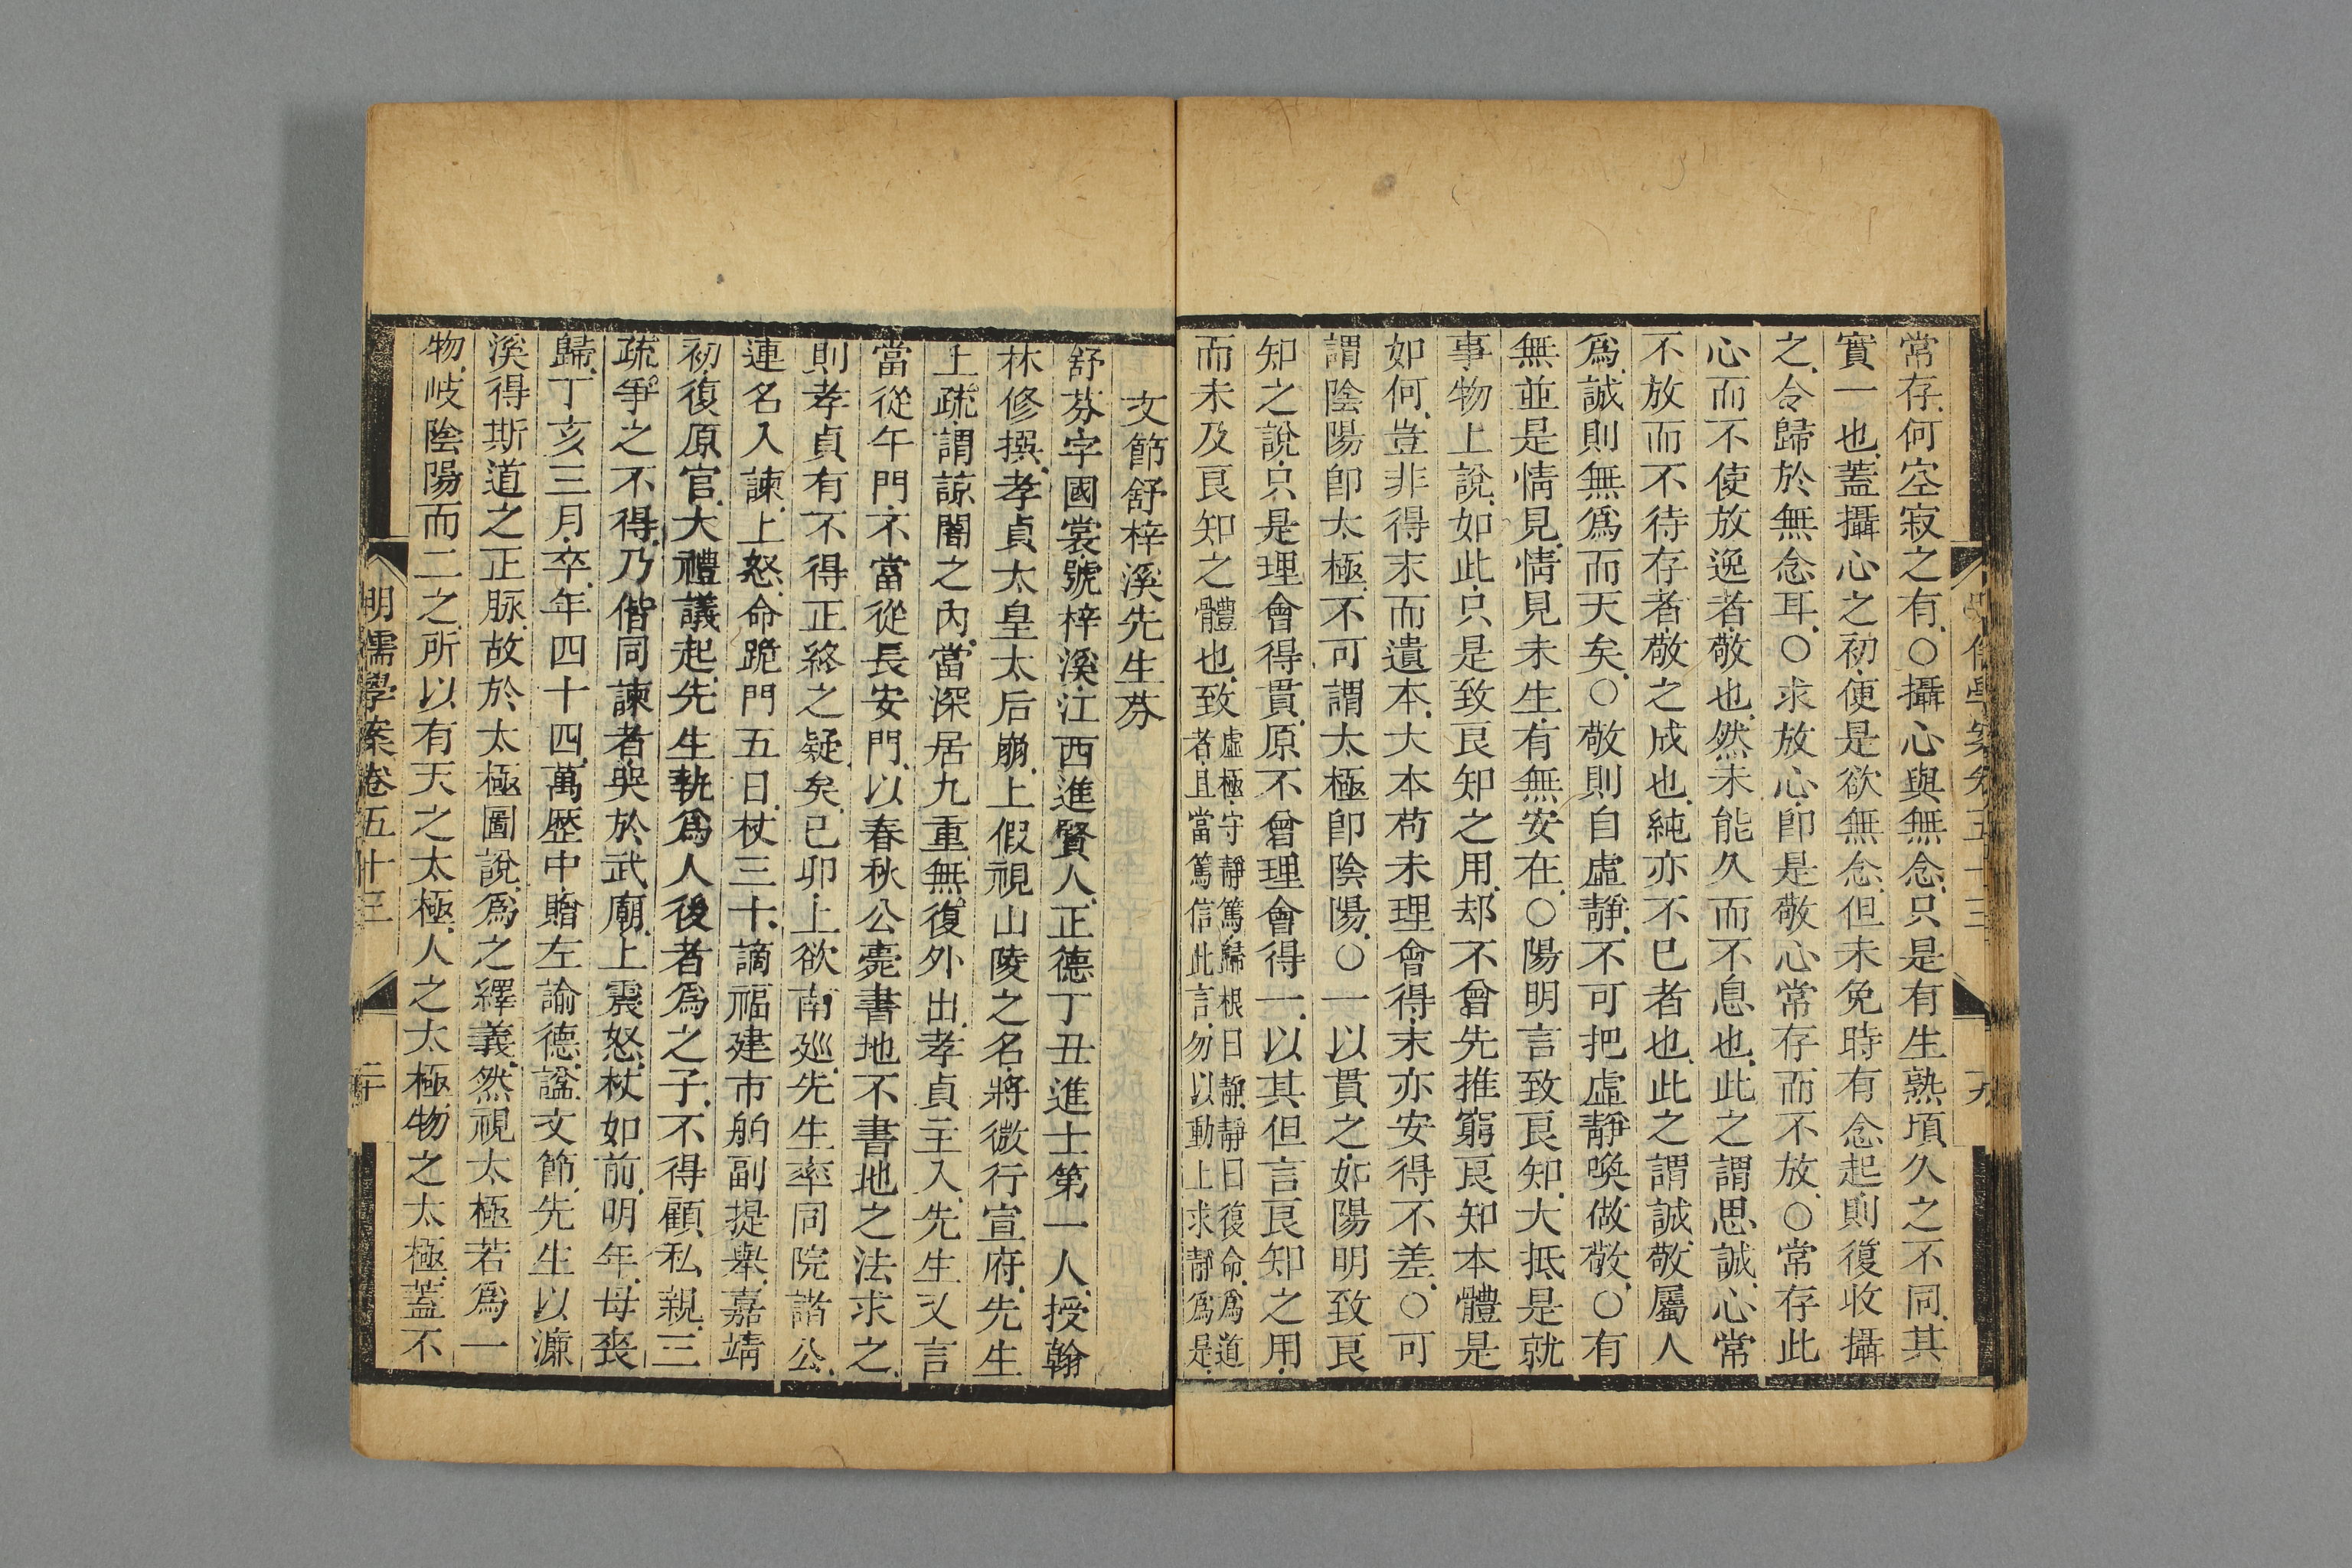 常存何空寂之有○攝心與無念只是有生熟頃久之不同其
實一也蓋攝心之初便是欲無念但未免時有念起則復收攝
之令歸於無念耳○求放心卽是敬心常存而不放○常存此
心而不使放逸者敬也然未能久而不息也此之謂思誠心常
不放而不待存者敬之成也純亦不已者也此之謂誠敬屬人
爲誠則無爲而天矣○敬則自虛靜不可把虛靜喚做敬○有
無並是情見情見未生有無安在○陽明言致良知大抵是就
事物上說如此只是致良知之用却不曾先推窮良知本體是
如何豈非得末而遺本大本苟未理會得末亦安得不差○可
謂陰陽卽太極不可謂太極卽陰陽○一以貫之如陽明致良
知之說只是理會得貫原不曾理會得一以其但言良知之用
而未及良知之體也致虛極守靜篤歸根曰靜靜曰復命爲道
者且當篤信此言勿以動上求靜爲是
文節舒梓溪先生芬
舒芬字國裳號梓溪江西進賢人正德丁丑進士第一人授翰
林修撰孝貞太皇太后崩上假視山陵之名將微行宣府先生
上疏謂諒闇之內當深居九重無復外出孝貞主入先生又言
當從午門不當從長安門以春秋公薨書地不書地之法求之
則孝貞有不得正終之疑矣己卯上欲南巡先生率同院諸公
連名入諫上怒命跪門五日杖三十謫福建市舶副提舉嘉靖
初復原官大禮議起先生執爲人後者爲之子不得顧私親三
疏爭之不得乃偕同諫者哭於武廟上震怒杖如前明年母喪
歸丁亥三月卒年四十四萬歷中贈左諭德諡文節先生以濂
溪得斯道之正脉故於太極圖說爲之繹義然視太極若爲一
物岐陰陽而二之所以有天之太極人之太極物之太極蓋不
明儒學案卷五十三
二十